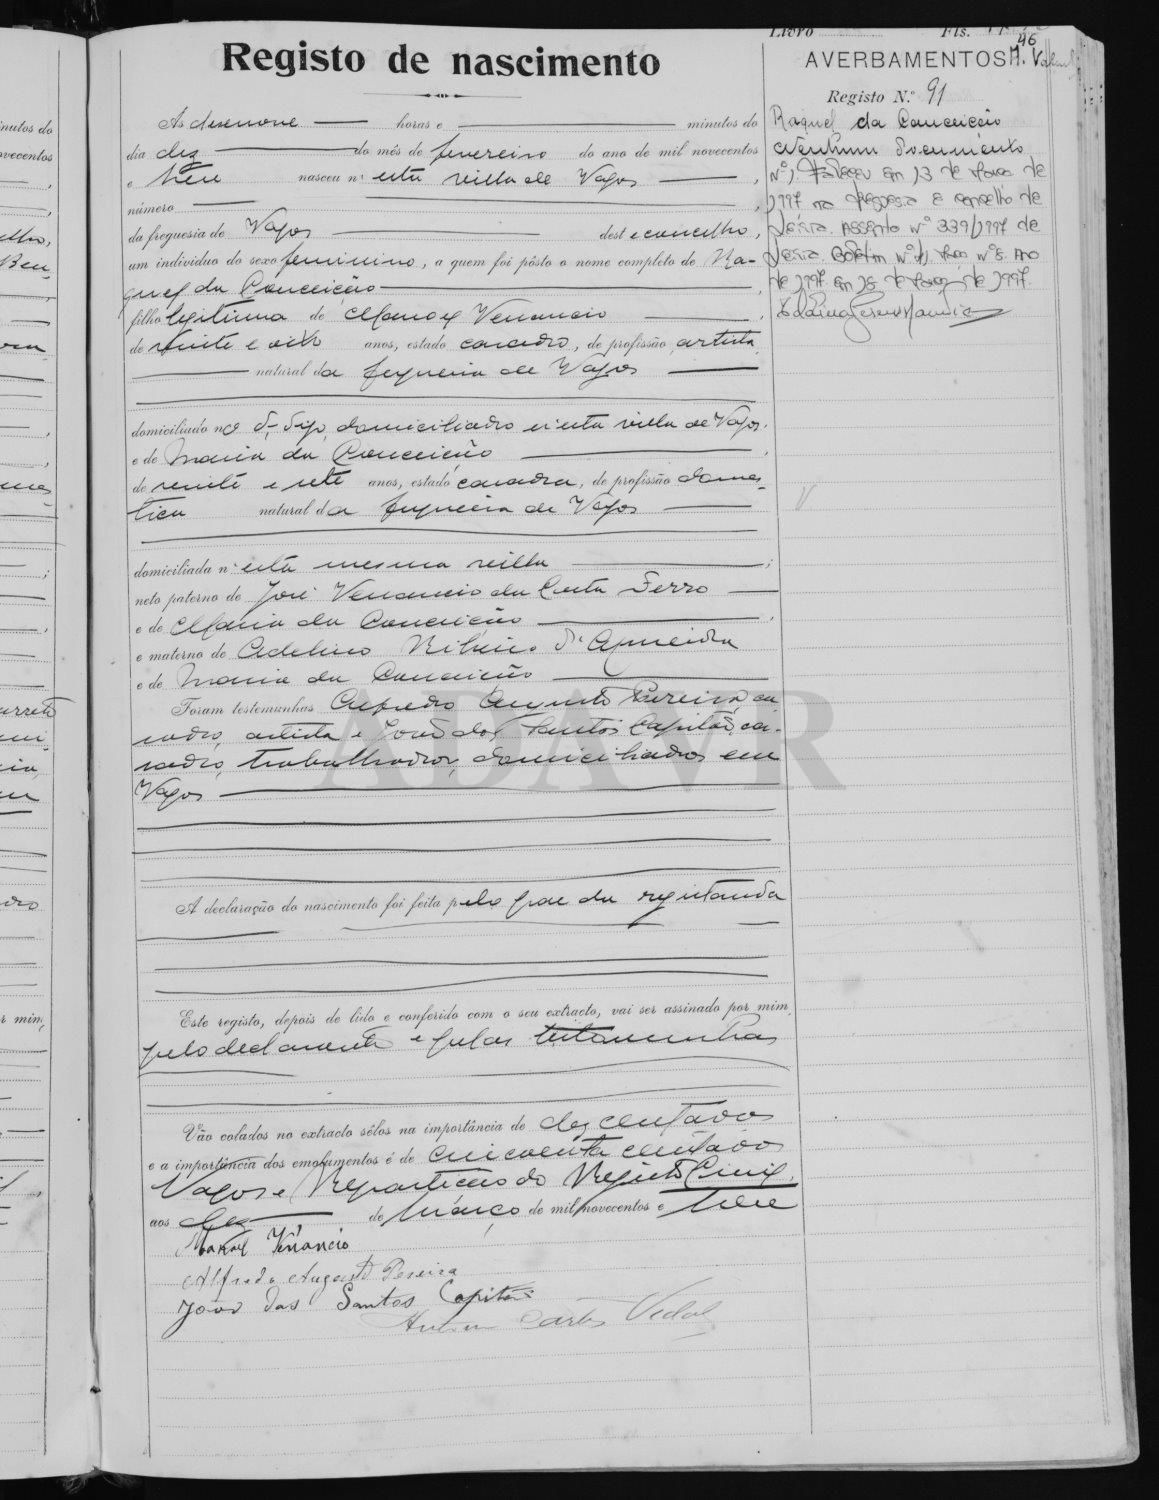 Livro Fls.
46
Registo de nascimento
Ás desenove horas e minutos do
dia dez do mês de fevereiro do ano de mil novecentos
e treze nasceu n'esta villa de Vagos,
número
da freguesia de Vagos deste concelho,
um indivíduo do sexo feminino, a quem foi pôsto o nome completo de Ra-
quel da Conceição,
filho legitima de Manoel Venancio,
de vinte e oito anos, estado casado, de profissão artista
natural da freguesia de Vagos
domiciliado no domiciliado n'esta villa de Vagos.
e de Maria da Conceição,
de vinte e sete anos, estado casada, de profissão domes-
tica natural da freguesia de Vagos
domiciliada n'esta mesma villa;
neto paterno de José Venancio da Costa Ferro
e de Maria da Conceição,
e materno de Adelino Ribeiro d'Almeida
e de Maria da Conceição
Foram testemunhas Alfredo Augusto Pereira, ca-
sado, artista e João dos Santos Capitão, ca-
sado, trabalhador, domiciliados em
Vagos
A declaração do nascimento foi feita pelo pae da registanda
Este registo, depois de lido e conferido com o seu extracto, vai ser assinado por mim,
pelo declarante e pelas testemunhas
Vão colados no extracto sêlos na importância de dez centavos
e a importância dos emolumentos é de cincoenta centavos
Vagos e Repartição do Registo Civil,
aos dez de Março de mil novecentos e treze
Manoel Venancio
Alfredo Augusto Pereira
João dos Santos Capitão
Carlos Vidal
AVERBAMENTOS
Registo N.º 91
Raquel da Conceição
Nenhum Documento
Nº1 Faleceu em 13 de Março de
1997 na freguesia e concelho de
Leiria. Assento nº 339/1997 de
Leiria. Boletim nº
de 1997. em 18 de Março de 1997.
ADAVR